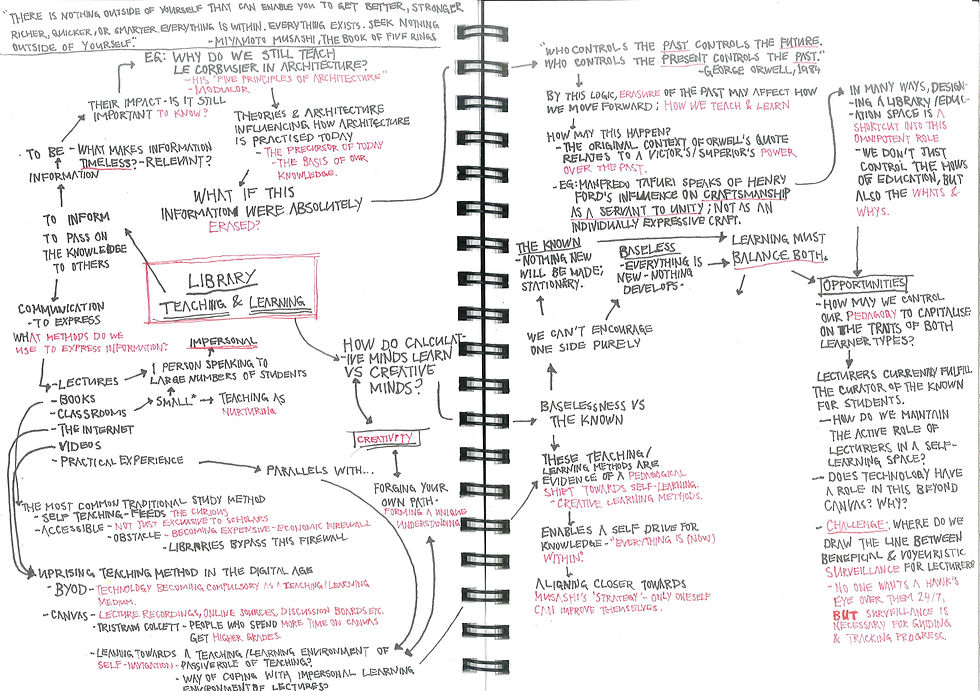 "THERE IS NOTHING OUTSIDE OF YOURSELF THAT CAN ENABLE YOU TO GET BETTER, STRONGER
RICHER, QUICKER, OR SMARTER. EVERYTHING IS WITHIN. EVERYTHING EXISTS. SEEK NOTHING
OUTSIDE OF YOURSELF." -MIYAMOTO MUSASHI, THE BOOK OF FIVE RINGS
EG: WHY DO WE STILL TEACH
LE CORBUSIER IN ARCHITECTURE?
- HIS "FIVE PRINCIPLES OF ARCHITECTURE"
- MODULOR
THEIR IMPACT - IS IT STILL
IMPORTANT TO KNOW?
THEORIES & ARCHITECTURE
INFLUENCING HOW ARCHITECTURE
IS PRACTISED TODAY
- THE PRECURSOR OF TODAY
- THE BASIS OF OUR
KNOWLEDGE.
TO BE - WHAT MAKES INFORMATION
TIMELESS? - RELEVANT?
INFORMATION
WHAT IF THIS
INFORMATION WERE ABSOLUTELY
ERASED?
TO INFORM
TO PASS ON
THE KNOWLEDGE
TO OTHERS
LIBRARY
TEACHING & LEARNING
COMMUNICATION
- TO EXPRESS
WHAT METHODS DO WE
USE TO EXPRESS INFORMATION?
IMPERSONAL
- LECTURES
1 PERSON SPEAKING TO
LARGE NUMBERS OF STUDENTS
- BOOKS
- CLASSROOMS
"SMALL" TEACHING AS
NURTURING
- THE INTERNET
- VIDEOS
- PRACTICAL EXPERIENCE
PARALLELS WITH...
HOW DO CALCULAT-
-IVE MINDS LEARN
VS CREATIVE
MINDS?
CREATIVITY
FORGING YOUR
OWN PATH -
FORMING A UNIQUE
UNDERSTANDING
THE MOST COMMON TRADITIONAL STUDY METHOD
- SELF TEACHING - FEEDS THE CURIOUS
- ACCESSIBLE - NOT JUST EXCLUSIVE TO SCHOLARS
- OBSTACLE - BECOMING EXPENSIVE - ECONOMIC FIREWALL
- LIBRARIES BYPASS THIS FIREWALL
UPRISING TEACHING METHOD IN THE DIGITAL AGE
- BYOD - TECHNOLOGY BECOMING COMPULSORY AS A TEACHING/LEARNING
MEDIUM.
- CANVAS - LECTURE RECORDINGS, ONLINE SOURCES, DISCUSSION BOARDS ETC.
- TRISTRAM COLLETT - PEOPLE WHO SPEND MORE TIME ON CANVAS
GET HIGHER GRADES.
- LEANING TOWARDS A TEACHING/LEARNING ENVIRONMENT OF
SELF-NAVIGATION - PASSIVE ROLE OF TEACHING?
- WAY OF COPING WITH IMPERSONAL LEARNING
ENVIRONMENT OF LECTURES?
"WHO CONTROLS THE PAST CONTROLS THE FUTURE.
WHO CONTROLS THE PRESENT CONTROLS THE PAST."
- GEORGE ORWELL, 1984
BY THIS LOGIC, ERASURE OF THE PAST MAY AFFECT HOW
WE MOVE FORWARD; HOW WE TEACH & LEARN
HOW MAY THIS HAPPEN?
- THE ORIGINAL CONTEXT OF ORWELL'S QUOTE
RELATES TO A VICTOR'S/SUPERIOR'S POWER
OVER THE PAST.
- EG: MANFREDO TAFURI SPEAKS OF HENRY
FORD'S INFLUENCE ON CRAFTSMANSHIP
AS A SERVANT TO UNITY; NOT AS AN
INDIVIDUALLY EXPRESSIVE CRAFT.
IN MANY WAYS, DESIGN-
-ING A LIBRARY/EDUC-
-ATION SPACE IS A
SHORTCUT INTO THIS
OMNIPOTENT ROLE
- WE DON'T JUST
CONTROL THE HOWS
OF EDUCATION, BUT
ALSO THE WHATS &
WHYS.
THE KNOWN
- NOTHING NEW
WILL BE MADE;
STATIONERY.
BASELESS
- EVERYTHING IS
NEW - NOTHING
DEVELOPS.
LEARNING MUST
BALANCE BOTH.
WE CAN'T ENCOURAGE
ONE SIDE PURELY
BASELESSNESS VS
THE KNOWN
THESE TEACHING/
LEARNING METHODS ARE
EVIDENCE OF A PEDAGOGICAL
SHIFT TOWARDS SELF-LEARNING.
- CREATIVE LEARNING METHODS.
ENABLES A SELF DRIVE FOR
KNOWLEDGE - "EVERYTHING IS (NOW)
WITHIN."
ALIGNING CLOSER TOWARDS
MUSASHI'S 'STRATEGY' - ONLY ONESELF
CAN IMPROVE THEMSELVES.
OPPORTUNITIES
- HOW MAY WE CONTROL
OUR PEDAGOGY TO CAPITALISE
ON THE TRAITS OF BOTH
LEARNER TYPES?
LECTURERS CURRENTLY FULFIL
THE CURATOR OF THE KNOWN
FOR STUDENTS.
- HOW DO WE MAINTAIN
THE ACTIVE ROLE OF
LECTURERS IN A SELF-
LEARNING SPACE?
- DOES TECHNOLOGY HAVE
A ROLE IN THIS BEYOND
CANVAS? WHY?
- CHALLENGE: WHERE DO WE
DRAW THE LINE BETWEEN
BENEFICIAL & VOYEURISTIC
SURVEILLANCE FOR LECTURERS?
- NO ONE WANTS A HAWK'S
EYE OVER THEM 24/7,
BUT SURVEILLANCE IS
NECESSARY FOR GUIDING
& TRACKING PROGRESS.